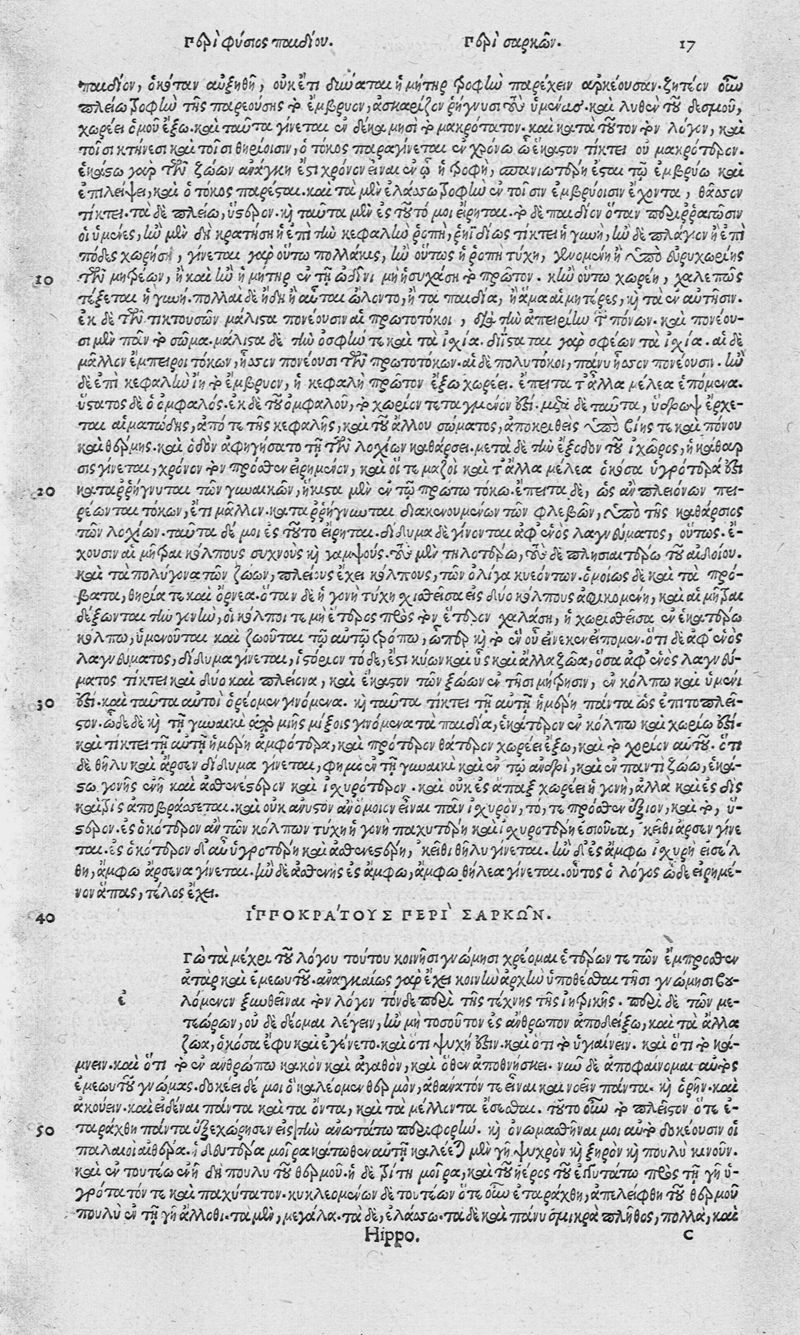 Περὶ φύσιος παιδίου. Περὶ σαρκῶν. 17
παιδίον, ὁκόταν αὐξηθῇ, οὐκ ἔτι δύναται ἡ μήτηρ τροφὴν παρέχειν ἀρκέουσαν. ζητέον οὖν
πλείω τροφὴν τῆς παρεούσης τὸ ἔμβρυον, ἀσκαρίζον ῥήγνυσι τοὺς ὑμένας. καὶ λυθὲν τοῦ δεσμοῦ,
χωρέει ὁμοῦ ἔξω. καὶ ταῦτα γίνεται ἐν δέκα μησὶ τὸ μακρότατον. κατὰ τοῦτον τὸν λόγον, καὶ
τοῖσι κτήνεσι καὶ τοῖσι θηρίοισιν, ὁ τόκος παραγίνεται ἐν χρόνω ὧ ἕκαστον τίκτει οὐ μακρότερον.
ἑκάστω γὰρ τῶν ζώων ἀνάγκη ἐστὶ χρόνον εἶναι ἐν ᾧ ἡ τροφὴ, σπανιωτέρη ἔσται τῷ ἐμβρύω καὶ
ἐπιλείψει, καὶ ὁ τόκος παρέσται. καὶ τὰ μὲν ἐλάσσω τροφὴν ἐν τοῖσιν ἐμβρύοισιν ἔχοντα, θᾶσσον
τίκτει. τὰ δὲ πλείω, ὕστερον. κὴ ταῦτα μὲν ἐς τοῦτό μοι εἴρηται. τὸ δὲ παιδίον ὅταν περιρραγῶσιν
οἱ ὑμένες, ἢν μὲν δὴ κρατήσῃ ἡ ἐπὶ τὴν κεφαλὴν ῥοπὴ, ῥηϊδίως τίκτει ἡ γυνὴ, ἢν δὲ πλάγιον ἢ ἐπὶ
πόδες χωρήσῃ, γίνεται γὰρ οὕτω πολλάκις, ἢν οὕτως ἡ ῥοπὴ τύχῃ, γενομένη ἢ ὑπὸ εὐρυχωρίης
10 τῶν μητρέων, ἢ καὶ ἢν ἡ μήτηρ ἐν τῇ ὠδῖνι μὴ ἡσυχάσῃ τὸ πρῶτον. κἢν οὕτω χωρέῃ, χαλεπῶς
τέξεται ἡ γυνή. πολλαὶ δὲ ἤδη ἢ αὗται ὤλοντο, ἢ τὰ παιδία, ἢ ἅμα αἱ μητέρες, κὴ τὰ ἐν αὐτῇσιν.
ἐκ δὲ τῶν τικτουσῶν μάλιστα πονέουσιν αἱ πρωτοτόκοι, διὰ τὴν ἀπειρίην τῶν πόνων. καὶ πονέου-
σι μὲν πᾶν τὸ σῶμα. μάλιστα δὲ τὴν ὀσφύν τε καὶ τὰ ἰσχία. διίσταται γάρ σφέων τὰ ἰσχία. αἱ δὲ
μᾶλλον ἔμπειροι τόκων, ἧσσον πονέουσι τῶν πρωτοτόκων. αἱ δὲ πολυτόκοι, πάνυ ἧσσον πονέουσιν. ἢν
δὲ ἐπὶ κεφαλὴν ἴῃ τὸ ἔμβρυον, ἡ κεφαλὴ πρῶτον ἔξω χωρέει. ἔπειτα τἆλλα μέλεα ἑπόμενα.
ὕστατος δὲ ὁ ὀμφαλός. ἐκ δὲ τοῦ ὀμφαλοῦ, τὸ χωρίον τεταγμένον ἐστί. μετὰ δὲ ταῦτα, ὕδρωψ ἔρχε-
ται αἱματώδης, ἀπό τε τῆς κεφαλῆς, καὶ τοῦ ἄλλου σώματος, ἀποκριθεὶς ὑπὸ βίης τε καὶ πόνου
καὶ θέρμης. καὶ ὁδὸν ἀφηγήσατο τῇ τῶν λοχίων καθάρσει. μετὰ δὲ τὴν ἔξοδον τοῦ ἰχῶρος, ἡ κάθαρ
σις γίνεται, χρόνον τὸν πρόσθεν εἰρημένον, καὶ οἵ τε μαζοὶ καὶ τἄλλα μέλεα ὁκόσα ὑγρότερά ἐστι
20 καταρρήγνυται τῶν γυναικῶν, ἥκιστα μὲν ἐν τῷ πρώτω τόκω. ἔπειτα δὲ, ὡς ἂν πλειόνων πει-
ρέωνται τόκων, ἔτι μᾶλλον. καταρρήγνυνται διακενουμένων τῶν φλεβῶν, ὑπὸ τῆς καθάρσιος
τῶν λοχίων. ταῦτα δέ μοι ἐς τοῦτο εἴρηται. δίδυμα δὲ γίνονται ἀφ’ ἑνὸς λαγνεύματος, οὕτως. ἔ-
χουσιν αἱ μῆτραι κόλπους συχνοὺς κὴ γαμψούς. τοὺς μὲν τηλοτέρω, τοὺς δὲ πλησιαιτέρω τοῦ αἰδοίου.
καὶ τὰ πολύγονα τῶν ζώων, πλείους ἔχει κόλπους, τῶν ὀλίγα κυεόντων. ὁμοίως δὲ καὶ τὰ πρό-
βατα, θηρία τε καὶ ὄρνεα. ὅταν δὲ ἡ γονὴ τύχῃ σχισθεῖσα εἰς δύο κόλπους ἀφικομένη, καὶ αἱ μῆτραι
δέξωνται τὴν γονὴν, οἱ κόλποι τε μὴ ἕτερος πρὸς τὸν ἕτερον χαλάσῃ, ἡ χωρισθεῖσα ἐν ἑκατέρω
κόλπω, ὑμενοῦται καὶ ζωοῦται τῷ αὐτῷ τρόπω, ὥσπερ κὴ τὸ ἓν οὗ εἵνεκεν εἴπομεν. ὅτι δὲ ἀφ’ ἑνὸς
λαγνεύματος, δίδυμα γίνεται, ἱστόριον τόδε, ἐστὶ κύων καὶ ὗς καὶ ἄλλα ζῶα, ὅσα ἀφ’ ἑνὸς λαγνεύ-
ματος τίκτει καὶ δύο καὶ πλείονα, καὶ ἕκαστον τῶν ζώων ἐν τῇσι μήτρῃσιν, ἐν κόλπω καὶ ὑμένι
30 ἐστί. καὶ ταῦτα αὐτοὶ ὁρέομεν γινόμενα. κὴ ταῦτα τίκτει τῇ αὐτῇ ἡμέρῃ πάντα ὡς ἐπιτοπλεῖ-
στον. ὧδε δὲ κὴ τῇ γυναικὶ ἀπὸ μιῆς μίξιος γινόμενα τὰ παιδία, ἑκάτερον ἐν κόλπω καὶ χωρίω ἐστί.
καὶ τίκτει τῇ αὐτῇ ἡμέρῃ ἀμφότερα, καὶ πρότερον θάτερον χωρέει ἔξω, καὶ τὸ χορίον αὐτοῦ. ὅτι
δὲ θῆλυ καὶ ἄρσεν δίδυμα γίνεται, φημὶ ἐν τῇ γυναικὶ καὶ ἐν τῷ ἀνδρὶ, καὶ ἐν παντὶ ζώω, ἑκά-
στω γονῆς ἐνῇ καὶ ἀσθενέστερον καὶ ἰσχυρότερον. καὶ οὐκ ἐς ἅπαξ χωρέει ἡ γονὴ, ἀλλὰ καὶ ἐς δὶς
καὶ τρὶς ἀποβράσσεται. καὶ οὐκ ἀνυστὸν ἂν ὅμοιον εἶναι πᾶν ἰσχυρὸν, τό, τε πρόσθεν ἐξιὸν, καὶ τὸ, ὕ-
στερον. ἐς ὁκότερον ἂν τῶν κόλπων τύχῃ ἡ γονὴ παχυτέρη καὶ ἰσχυροτέρη ἐσιοῦσα, κεῖθι ἄρσεν γίνε
ται. ἐς ὁκότερον δ’ ἂν ὑγροτέρη καὶ ἀσθενεστέρη, κεῖθι θῆλυ γίνεται. ἢν δ’ ἐς ἄμφω ἰσχυρὴ εἰσέλ
θῃ, ἄμφω ἄρσενα γίνεται. ἢν δὲ ἀσθενὴς ἐς ἄμφω, ἄμφω θήλεα γίνεται. οὗτος ὁ λόγος ὧδε εἰρημέ-
νον ἅπας, τέλος ἔχει.
40 ἹΠΠΟΚΡΆΤΟΥΣ ΠΕΡῚ ΣΑΡΚΩ͂Ν.
ἐ γὼ τὰ μέχρι τοῦ λόγου τούτου κοινῇσι γνώμῃσι χρέομαι ἑτέρων τε τῶν ἔμπροσθεν
ἀτὰρ καὶ ἐμεωυτοῦ. ἀναγκαίως γὰρ ἔχει κοινὴν ἀρχὴν ὑποθέσθαι τῇσι γνώμῃσι βου-
λόμενον ξυνθεῖναι τὸν λόγον τόνδε περὶ τῆς τέχνης τῆς ἰητρικῆς. περὶ δὲ τῶν με-
τεώρων, οὐ δὲ δέομαι λέγειν, ἢν μὴ τοσοῦτον ἐς ἄνθρωπον ἀποδείξω, καὶ τὰ ἄλλα
ζῶα, ὁκόσα ἔφυ καὶ ἐγένετο. καὶ ὅτι ψυχή ἐστιν. καὶ ὅτι τὸ ὑγιαίνειν. καὶ ὅτι τὸ κά-
μνειν. καὶ ὅτι τὸ ἐν ἀνθρώπω κακὸν καὶ ἀγαθὸν, καὶ ὅθεν ἀποθνήσκει. νῦν δὲ ἀποφαίνομαι αὐτὸς
ἐμεωυτοῦ γνώμας. δοκέει δέ μοι ὃ καλέομεν θερμὸν, ἀθάνατόν τε εἶναι καὶ νοεῖν πάντα. κὴ ὁρῇν. καὶ
ἀκούειν. καὶ εἰδέναι πάντα καὶ τὰ ὄντα, καὶ τὰ μέλλοντα ἔσεσθαι. τοῦτο οὖν τὸ πλεῖστον ὅτε ἐ-
50 ταράχθη πάντα ἐξεχώρησεν εἰς τὴν ἀνωτάτω περιφορήν. κὴ ὀνομασθῆναί μοι αὐτὸ δοκέουσιν οἱ
παλαιοὶ αἰθέρα. ἡ δευτέρα μοῖρα κάτωθεν αὐτὴ καλέεται μὲν γῆ ψυχρὸν κὴ ξηρὸν κὴ πουλὺ κινοῦν.
καὶ ἐν τουτέω ἔνῃ δὴ πουλὺ τοῦ θερμοῦ. ἡ δὲ τρίτη μοῖρα, καὶ τοῦ ἠέρος τοῦ ἐγγυτάτω πρὸς τῇ γῇ ὑ-
γρότατόν τε καὶ παχύτατον. κυκλεομένων δὲ τουτέων ὅτε οὖν ἐταράχθη, ἀπελείφθη τοῦ θερμοῦ
πουλὺ ἐν τῇ γῇ ἄλλοθι. τὰ μὲν, μεγάλα. τὰ δὲ, ἐλάσσω. τὰ δὲ καὶ πάνυ σμικρὰ πλῆθος, πολλὰ, καὶ
Hippo. C